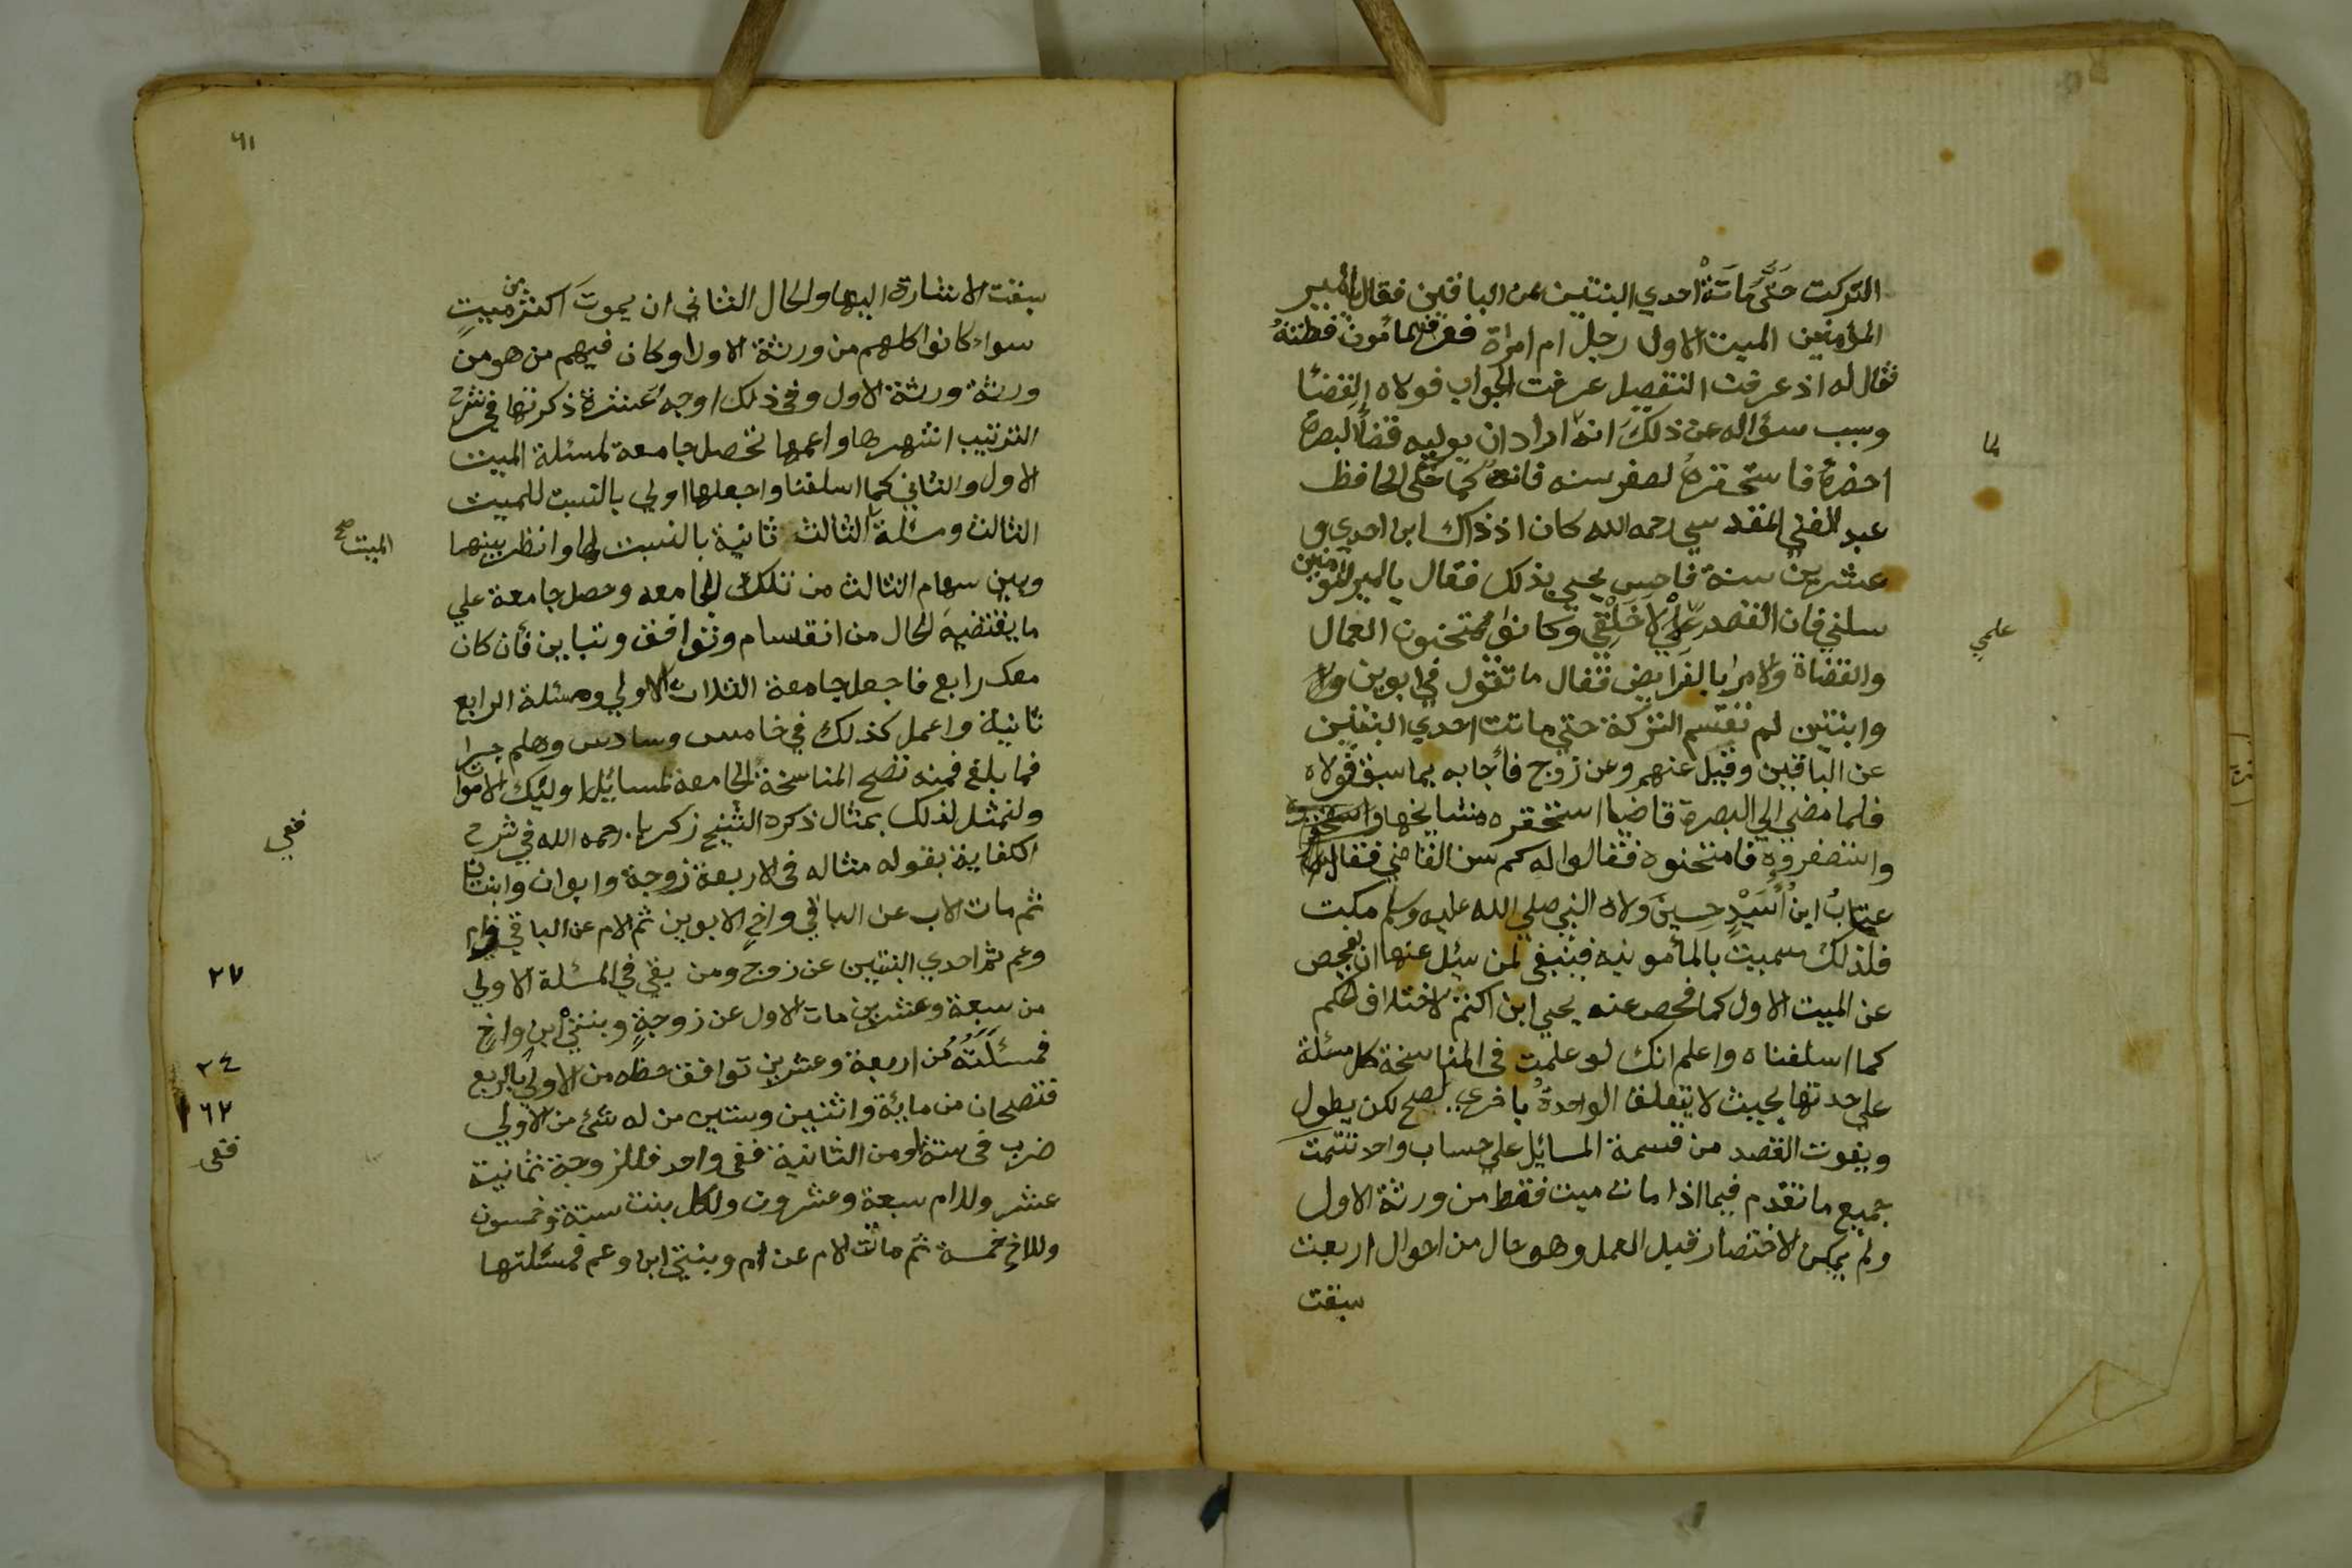 التركت حتى ماتة احدي البنتين عن الباقين فقال ياامير
المؤمنين الميت الاول رجل ام امراة فعرف المأمون فطنته
فقال له اذ عرفت التفصيل عرفت الجواب فولاه القضا
وسبب سؤاله عن ذلك انه اراد ان يوليه قضا البصرة
احضره فاستحقره لصغر سنه فانه كما حكى الحافظ
لما
عبد الغني المقدسي رحمه الله كان اذ ذاك ابن احدي و
عشرين سنة فاحس يحيي بذلك فقال ياامير المؤمنين
سلني فان القصد علمي لا خلقي وكانوا يمتحنون العمال
علمي
والقضاة والامرا بالفرايض فقال ما تقول في ابوين و
وابنتين لم تقسم التركة حتي ماتت احدي البنتين
عن الباقين وقيل عنهم وعن زوج فأجابه بما سبق فولاه
فلما مضي الي البصرة قاضيا استحقره مشايخها
واستصغروه فامتحنوه فقالوا له كم سن القاضي فقال
عتاب ابن أسيد حسين ولاه النبي صلي الله عليه وسلم مكت
فلذلك سميت بالمأمونيه فينبغي لمن سئل عنها ان يفحص
عن الميت الاول كما فحص عنه يحيي ابن اكثم لاختلاف الحكم
كما اسلفناه واعلم انك لو علمت في المناسخة كل مسئلة
علي حدتها بحيث لا يتعلق الواحدة باخري لصح لكن يطول
ويفوت القصد من قسمة المسائل علي حساب واحد تتمت
جميع ما تقدم فيما اذا مات ميت فقط من ورثة الاول
ولم يمكن الاختصار قبل العمل وهو حال من احوال اربعت
سبقت
٦١
سبقت الاشارة اليها والحال الثاني ان يموت اكثر من ميت
سواء كانوا كلهم من ورثة الاول او كان فيهم من هو من
ورثة ورثة الاول وفي ذلك اوجه عشرة ذكرتها في شرح
الترتيب اشهرها واعمها تحصل جامعة لمسئلة الميت
الاول والثاني كما اسلفنا واجعلها اولي بالنسبت للميت
الثالث ومسئلة الثالث ثانية بالنسبت لها وانظر بينهما
الميت صح
وبين سهام الثالث من تلك الجامعه وحصل جامعة علي
ما يقتضيه الحال من انقسام وتوافق وتباين فأن كان
معك رابع فاجعل جامعة الثلاث الاولي ومسئلة الرابع
ثانية واعمل كذلك في خامس وسادس وهلم جرا
فما بلغ فمنه تصح المناسخة الجامعة لمسائل اوليك الاموات
ولنمثل لذلك بمثال ذكره الشيخ زكريا رحمه الله في شرح
ففي
الكفاية بقوله مثاله في الاربعة زوجة وابوان وابنتان
ثم مات الاب عن الباقي واخ لابوين ثم الام عن الباقي وام
وعم ثم احدي البنتين عن زوج ومن بقي في المسئلة الاولي
٢٧
من سبعة وعشرين مات الاول عن زوجة وبنتي ابن واخ
فمسئلته من اربعة وعشرين توافق حظه من الاولي بالربع
٢٤
فتصحان من مايئة واثنين وستين من له شئ من الاولي
١٦٢
ضرب في ستة او من الثانية ففي واحد فللزوجة ثمانية
ففي
عشر وللام سبعة وعشرون ولكل بنت ستة وخمسون
وللاخ خمسة ثم ماتت الام عن ام وبنتي ابن وعم فمسئلتها